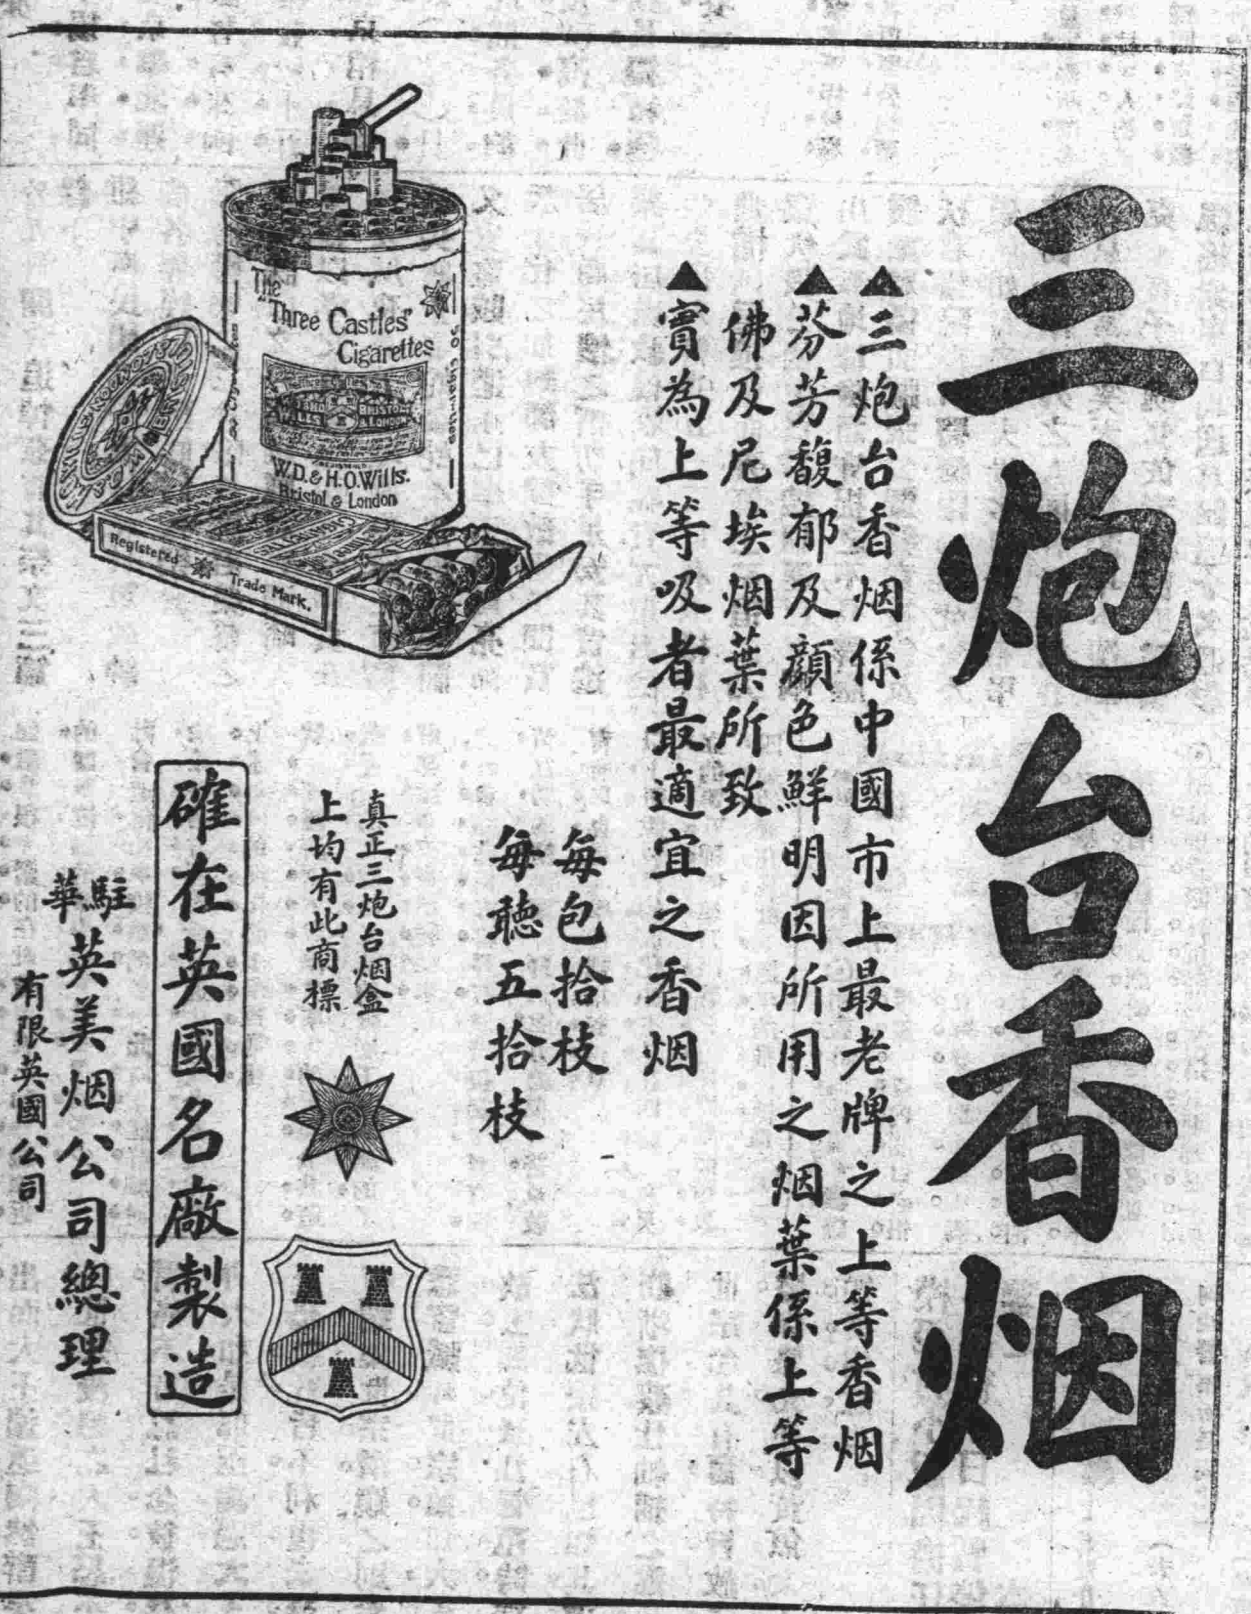 三炮台香烟
▲三炮台香烟係中國市上最老牌之上等香烟
▲芬芳馥郁及顏色鮮明因所用之烟葉係上等
佛及尼埃烟葉所致
▲實為上等吸者最適宜之香烟
每包拾枝
每聽五拾枝
真正三炮台烟盒
上均有此商標
確在英國名廠製造
駐華英美烟公司總理
有限英國公司
The
"Three Castles"
Cigarettes
50 Cigarettes
WILLS
BRISTOL
& LONDON
W.D. & H.O. Wills.
Bristol & London
Registered Trade Mark.